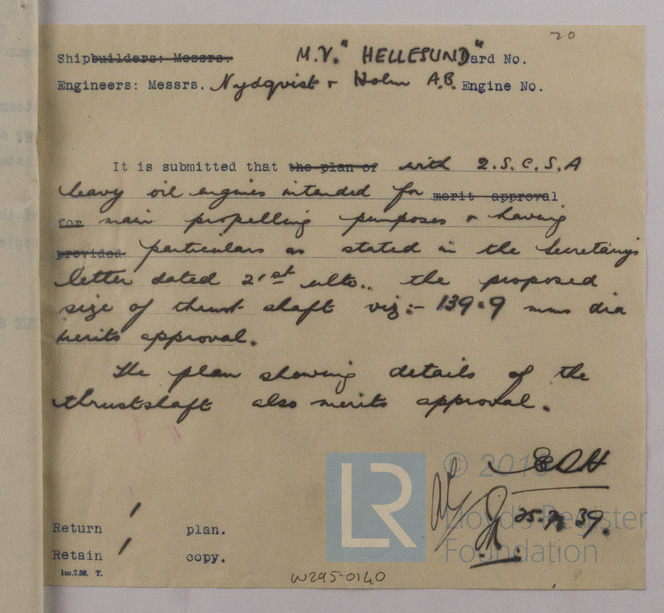 20
Ship~~builders: Messrs.~~ M.V. "HELLESUND" ard No.
Engineers: Messrs. Nydqvist & Holm A.B. Engine No.
It is submitted that ~~the plan of~~ with 2.S.C.S.A
heavy oil engines intended for ~~merit approval~~
~~for~~ main propelling purposes & having
~~provided~~ particulars as stated in the Secretary's
letter dated 21st ulto.. the proposed
size of thrust shaft viz:- 139.9 mms dia
merits approval.
The plan showing details of the
thrustshaft also merits approval.
LR
© 20
Lloyd's Register
Foundation
25. 39.
Return 1 plan.
Retain 1 copy.
1m.7.38. T.
W295-0140